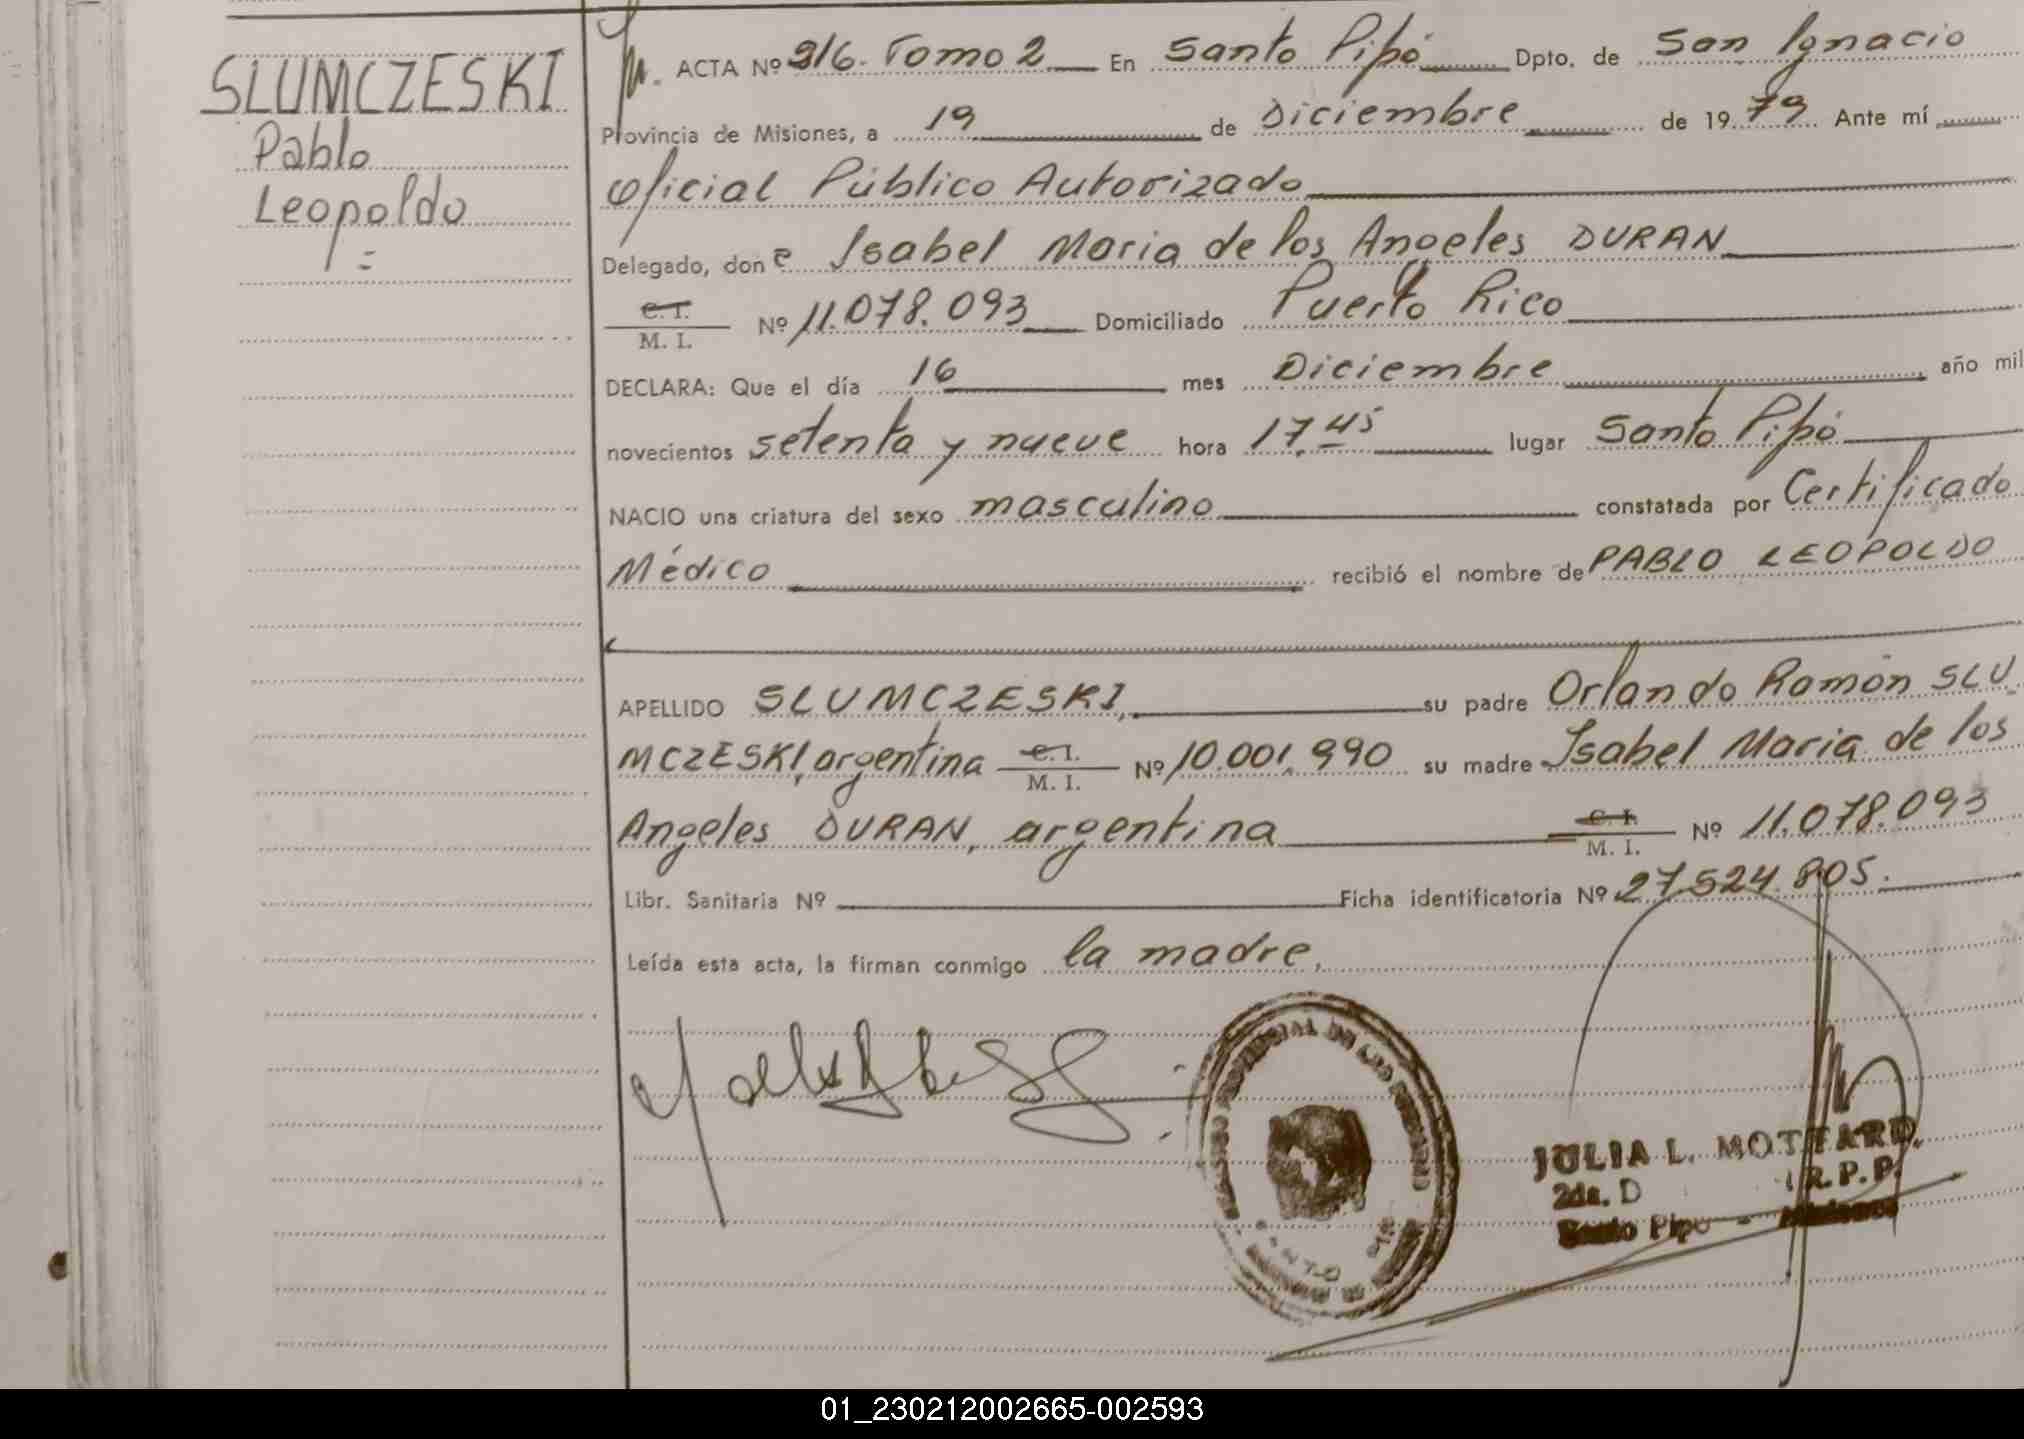 SLUMCZESKI
Pablo
Leopoldo
=
ACTA Nº 316. Tomo 2 En Santo Pipó Dpto. de San Ignacio
Provincia de Misiones, a 19 de Diciembre de 1979 Ante mí
Oficial Público Autorizado
Delegado, done Isabel Maria de los Angeles DURAN
C. I.
M. I. Nº 11.078.093 Domiciliado Puerto Rico
DECLARA: Que el día 16 mes Diciembre año mil
novecientos setenta y nueve hora 17.45 lugar Santo Pipó
NACIO una criatura del sexo masculino constatada por Certificado
Médico recibió el nombre de PABLO LEOPOLDO
APELLIDO SLUMCZESKI, su padre Orlando Ramón SLU
MCZESKI, argentina C. I. M. I. Nº 10.001.990 su madre Isabel Maria de los
Angeles DURAN, argentina C. I. M. I. Nº 11.078.093
Libr. Sanitaria Nº Ficha identificatoria Nº 27.524.805.
Leída esta acta, la firman conmigo la madre,
JULIA L. MOTTARD
2da. D R.P.P.
Santo Pipo - Misiones
01_230212002665-002593